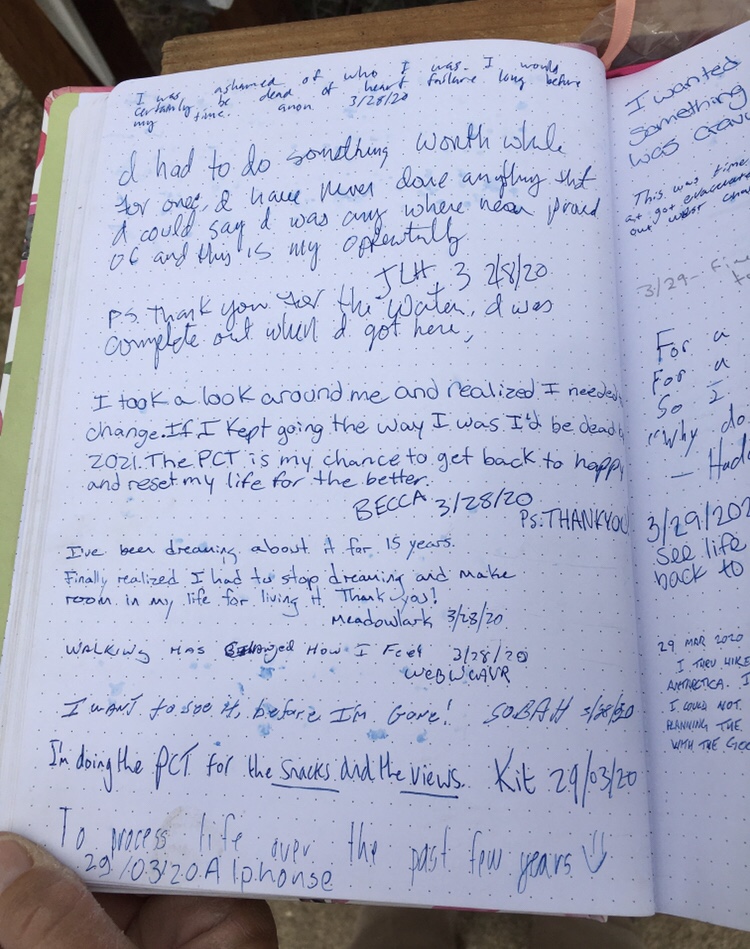 I was ashamed of who I was. I would
certainly be dead of heart failure long before
my time. anon 3/28/20
I had to do something worth while
for once, I have never done anything tht
I could say I was any where near proud
of and this is my
JLH 3 2/8/20
PS. Thank you for the water, I was
complete out when I got here,
I took a look around me and realized I needed
change. If I kept going the way I was I'd be dead
2021. The PCT is my chance to get back to happy
and reset my life for the better.
BECCA 3/28/20
Ps. THANKYOU
I've been dreaming about it for 15 years.
Finally realized I had to stop dreaming and make
room in my life for living it. Thank yas!
Meadowlark 3/28/20
WALKING HAS Changed How I Feel 3/28/20
WEBWEAVR
I WANT to see it, before I'm Gone! SOBAH 3/28/20
I'm doing the PCT for the snacks and the views. Kit 29/03/20
To process life over the past few years
29/03/20. Alphonse
I wanted
Something
was
This was
at got
out west
3/29-
For a
For a
So I
"Why do
3/29/202
See life
back to
29 MAR 2020
I THRU HIKE
ANTARCTICA. I
I COULD NOT
PLANNING THE
WITH THE